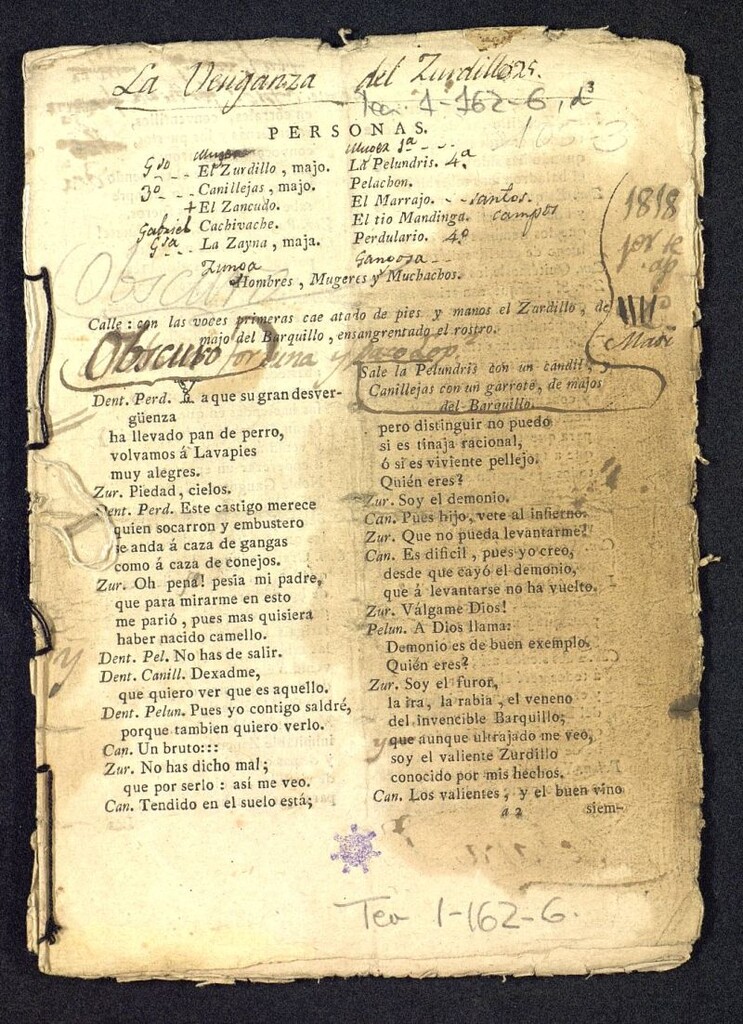 La Venganza del Zurdillo
Tea. 1-162-6, a³
PERSONAS.
Muger 1ª
El Zurdillo, majo.
3º Canillejas, majo.
+ El Zancudo.
Gabriel Cachivache.
Gda La Zayna, maja.
La Pelundris. 4.ª
Pelachon.
El Marrajo. -- santos.
El tio Mandinga. campos
Perdulario. 4º
Hombres, Mugeres y Muchachos.
1818
Obscuro
Calle: con las voces primeras cae atado de pies y manos el Zurdillo, de
majo del Barquillo, ensangrentado el rostro.
Obscuro
Dent. Perd. Ya que su gran desver-
güenza
ha llevado pan de perro,
volvamos á Lavapies
muy alegres.
Zur. Piedad, cielos.
Dent. Perd. Este castigo merece
quien socarron y embustero
se anda á caza de gangas
como á caza de conejos.
Zur. Oh pena! pesia mi padre,
que para mirarme en esto
me parió, pues mas quisiera
haber nacido camello.
Dent. Pel. No has de salir.
Dent. Canill. Dexadme,
que quiero ver que es aquello.
Dent. Pelun. Pues yo contigo saldré,
porque tambien quiero verlo.
Can. Un bruto:::
Zur. No has dicho mal;
que por serlo: asi me veo.
Can. Tendido en el suelo está;
Sale la Pelundris con un candil, y
Canillejas con un garrote, de majos
del Barquillo.
pero distinguir no puedo
si es tinaja racional,
ó si es viviente pellejo.
Quién eres?
Zur. Soy el demonio.
Can. Pues hijo, vete al infierno.
Zur. Que no pueda levantarme!
Can. Es dificil, pues yo creo,
desde que cayó el demonio,
que á levantarse no ha vuelto.
Zur. Válgame Dios!
Pelun. A Dios llama:
Demonio es de buen exemplo.
Quién eres?
Zur. Soy el furor,
la ira, la rabia, el veneno
del invencible Barquillo;
que aunque ultrajado me veo,
soy el valiente Zurdillo
conocido por mis hechos.
Can. Los valientes, y el buen vino
a 2 siem-
Tea 1-162-6.